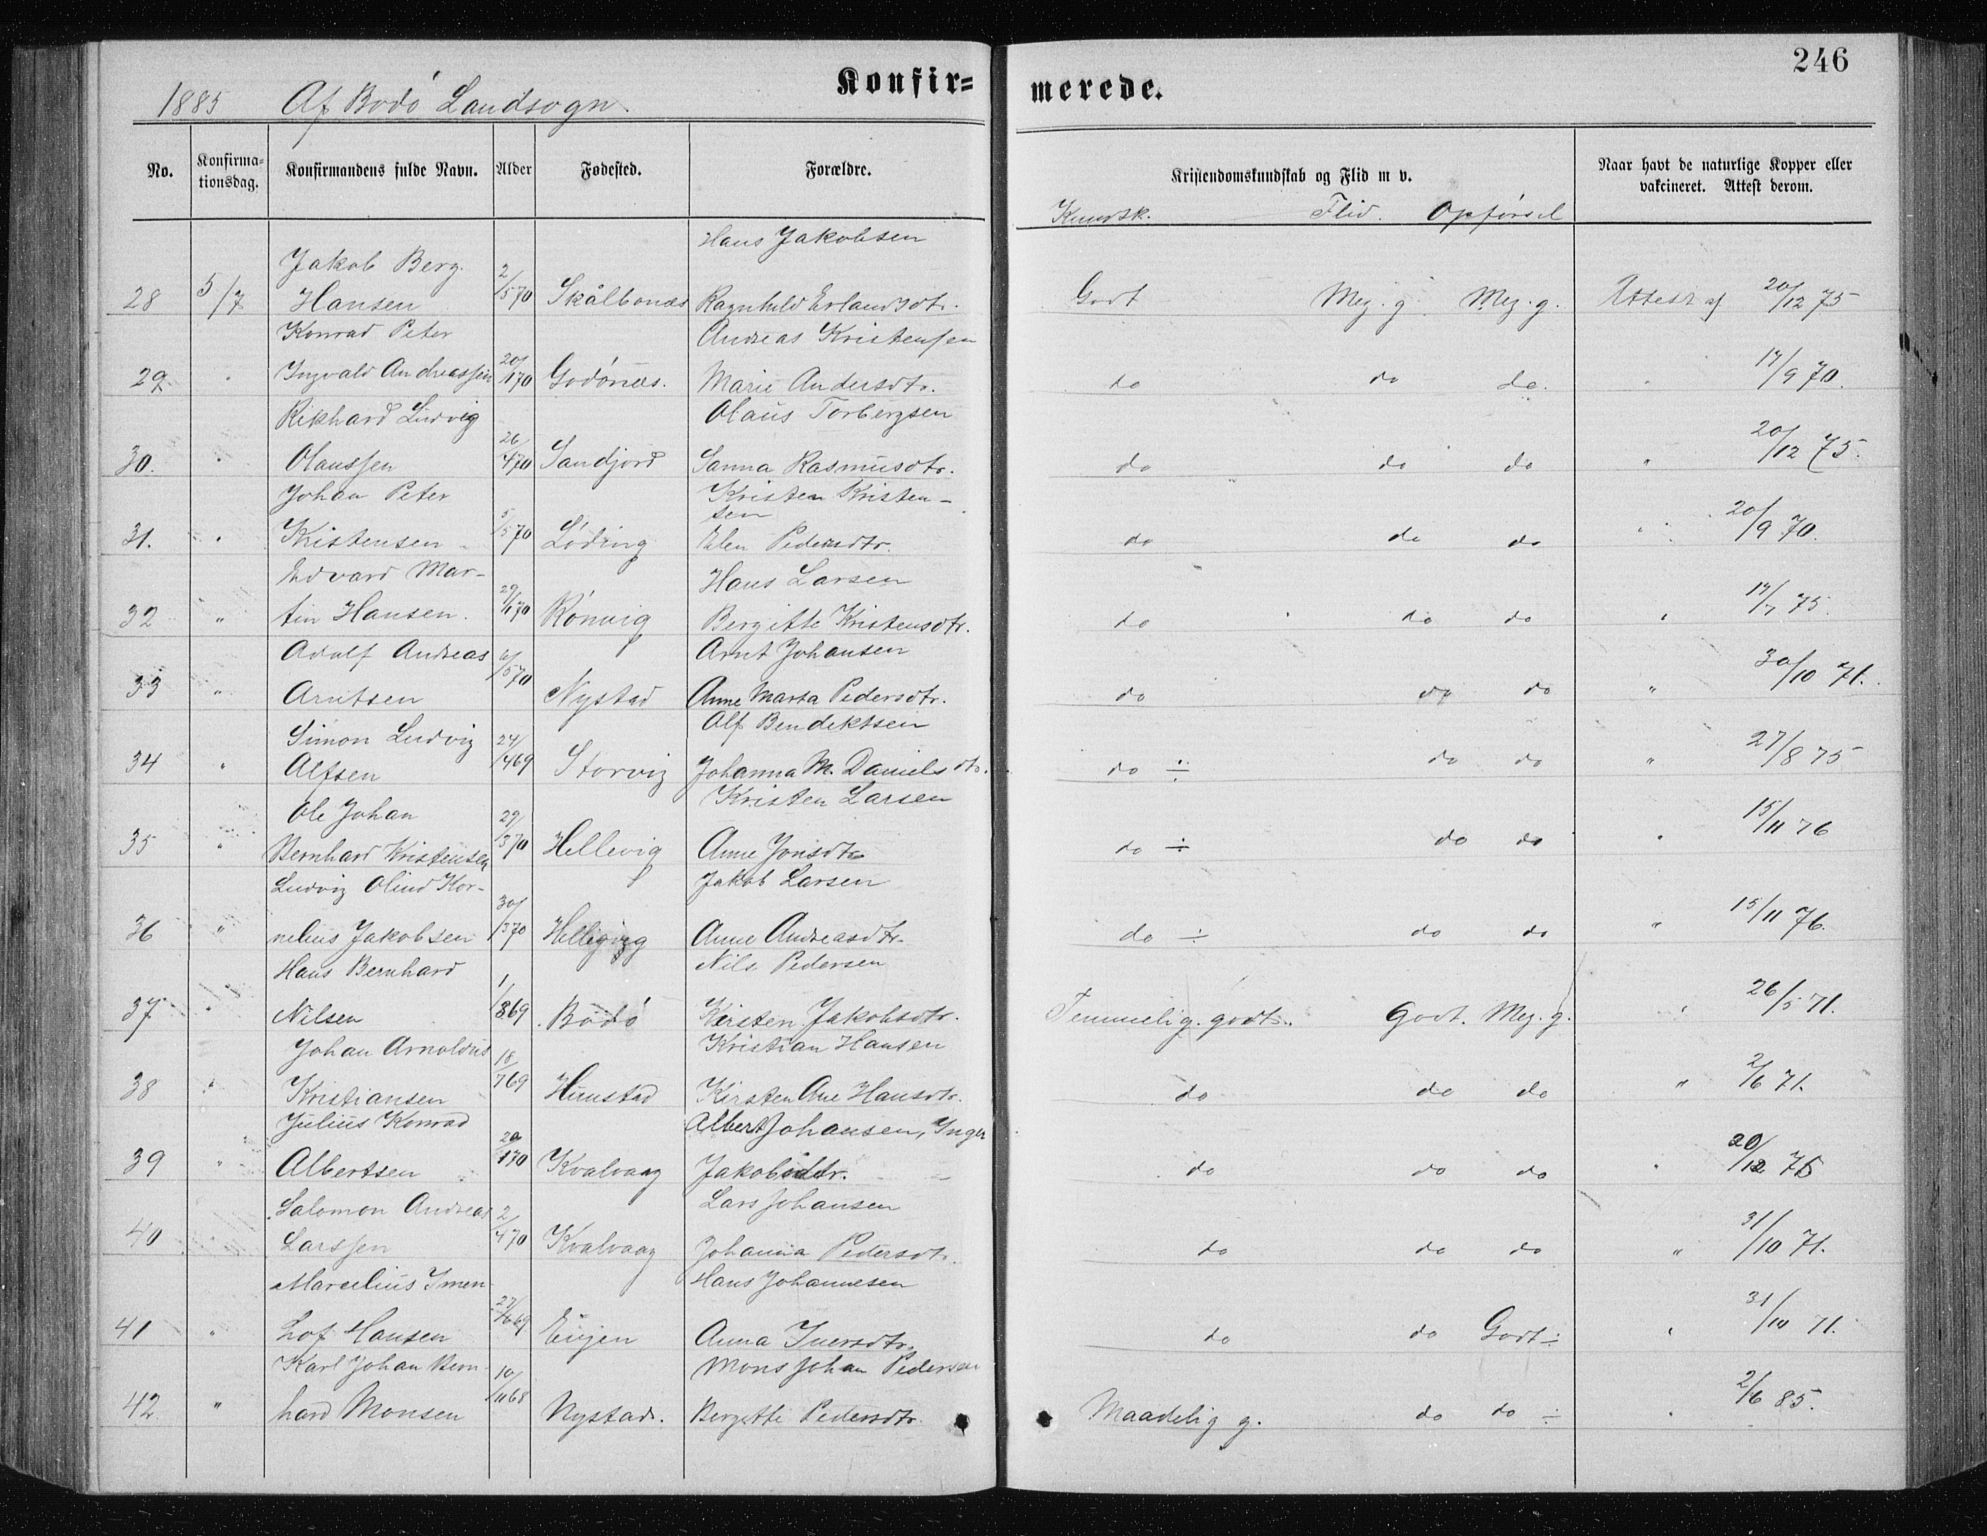 246
1885 Af Bodó Landsogn.
Konfir= merede.
No. Konfirma- tionsdag. Konfirmandens fulde Navn. Alder Fødested. Forældre. Kristendomskundskab og Flid m v. Naar havt de naturlige Kopper eller vakcineret. Attest derom.
Kundsk. Flid. Opførsel
Jakob Berg. Hans Jakobsen
28 5/7 Hansen 2/5 70 Skålbones Ragnhild Erlandsdtr. Godt Meg. g. Meg. g. Attest af 20/12 75
Konrad Peter Andreas Kristensen
29. " Ingvald Andreassen 20/1 70 Godónes. Marie Andersdtr. do do do. " 17/9 70.
Rikhard Ludvig Olaus Torbergsen
30. " Olaussen 26/4 70 Sandjord Sanna Rasmusdtr. do do do " 20/12 75.
Johan Peter Kristen Kristen-
sen
31. " Kristensen 5/5 70 Löding Elen Pedersdtr. do do do " 20/9 70.
Edvard Mar- Hans Larsen
32 " tin Hansen. 29/1 70 Rönvig Bergitte Kristensdtr. do do do " 17/7 75.
Adolf Andreas Arnt Johansen
33 " Arntsen 6/5 70 Nystad Anne Marta Pedersdtr. do do do " 30/10 71.
Simon Ludvig Alf Bendiktsen
34 " Alfsen 24/4 69 Storvig Johanna M. Danielsdtr. do ÷ do do " 27/8 75
Ole Johan Kristen Larsen
35 " Bernhard Kristensen 29/3 70 Hellevig Anne Jonsdtr. do ÷ do do " 15/11 76
Ludvig Olind Kor- Jakob Larsen
36 " nelius Jakobsen 30/3 70 Helligvig Anne Andreasdtr. do ÷ do do " 15/11 76.
Hans Bernhard Nils Pedersen
37 " Nilsen 1/8 69 Bodó Kirsten Jakobsdtr. Temmelig. godt. Godt. Meg. g. " 26/5 71.
Johan Arnoldus Kristian Hansen
38 " Kristiansen 18/7 69 Hunstad Kirsten Ane Hansdtr. do do do " 2/6 71.
Julius Konrad Albert Johansen, Inger
39 " Albertsen 20/1 70 Kvalvaag Jakobsdtr. do do do " 20/12 75
Salomon Andreas Lars Johansen
40 Larssen 2/4 70 Kvalvaag Johanna Pedersdtr. do do do " 31/10 71.
Marcelius Imen- Hans Johannesen
41 " Lof Hansen 27/6 69 Eugen Anna Iversdtr. do do Godt ÷ " 31/10 71.
Karl Johan Bern- Mons Johan Pedersen
42 " hard Monsen 10/11 68 Nystad. Bergitte Pedersdtr. Maadelig g. do do ÷ " 2/6 85.